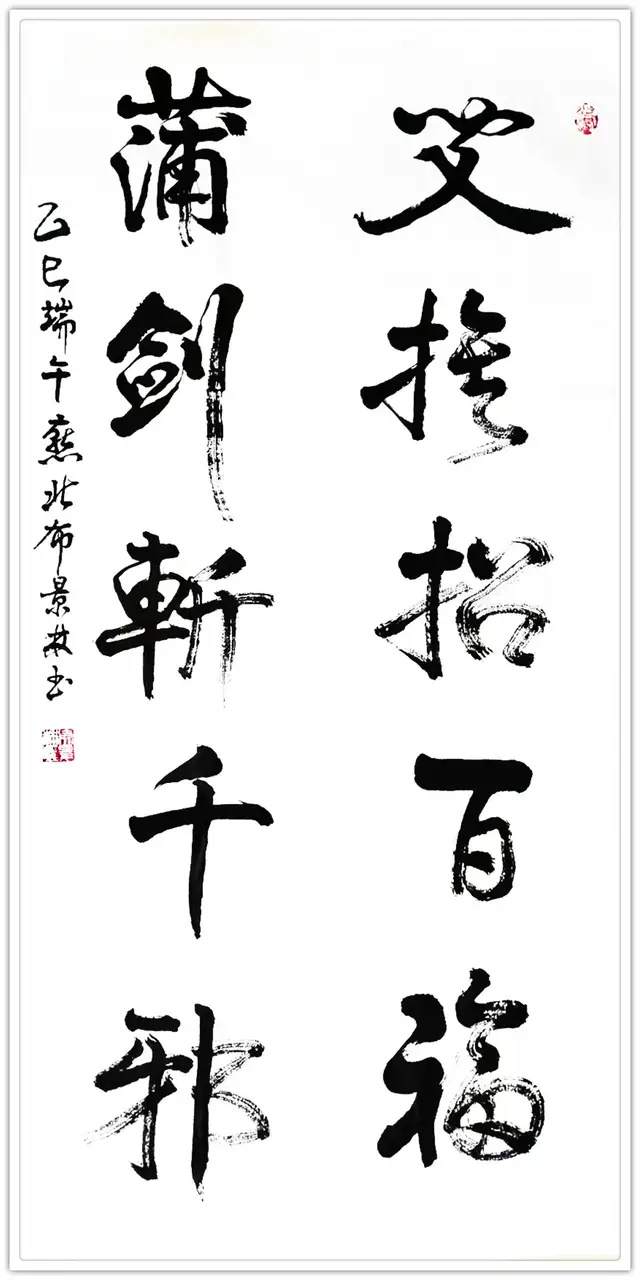 艾旗招百福
蒲劍斬千邪
乙巳端午燕北布景林书